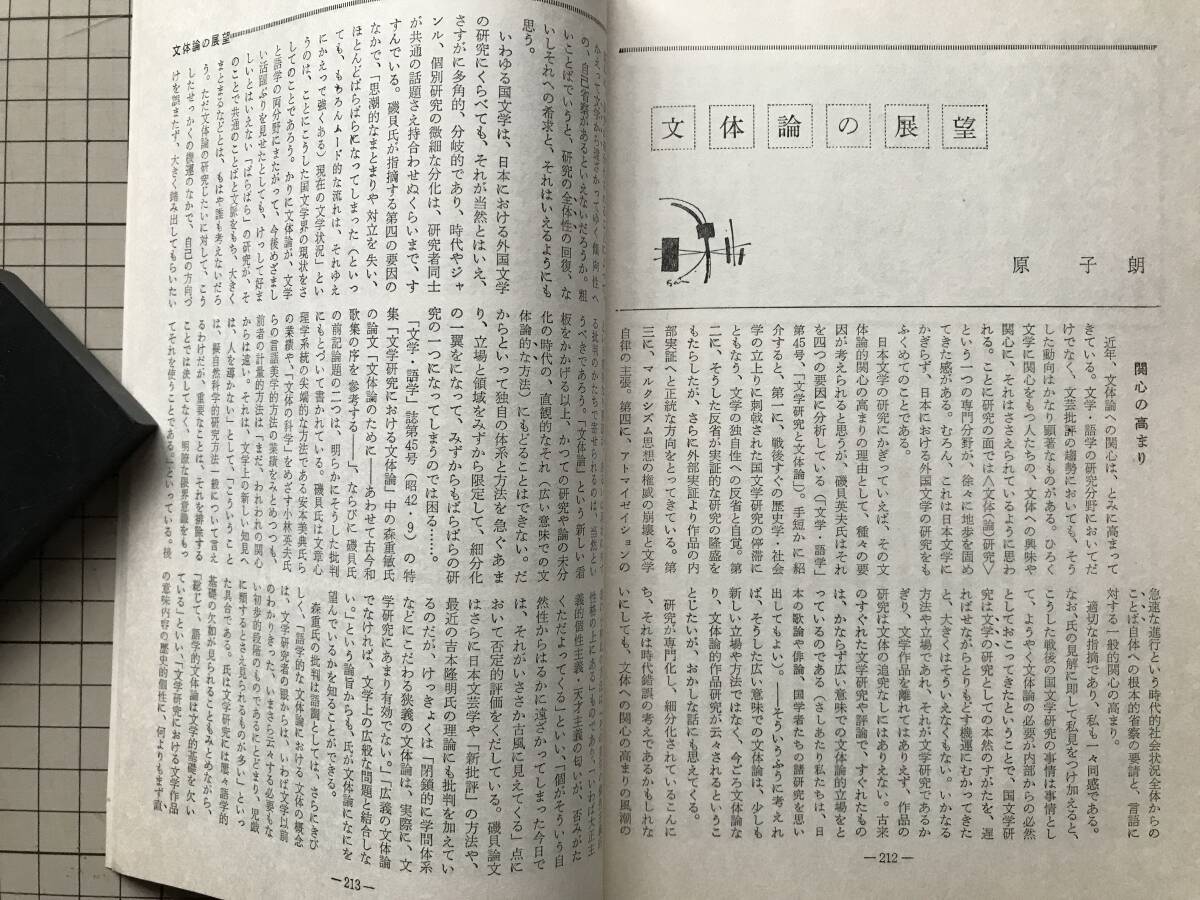 文体論の展望
原子朗
関心の高まり
近年、文体論への関心は、とみに高まって
きている。文学・語学の研究分野においてだ
けでなく、文芸批評の趨勢においても、そう
した動向はかなり顕著なものがある。ひろく
文学に関心をもつ人たちの、文体への興味や
関心に、それはささえられているように思わ
れる。ことに研究の面では〈文体(論)研究〉
という一つの専門分野が、徐々に地歩を固め
てきた感がある。むろん、これは日本文学に
かぎらず、日本における外国文学の研究をも
ふくめてのことである。
日本文学の研究にかぎっていえば、その文
体論的関心の高まりの理由として、種々の要
因が考えられると思うが、磯貝英夫氏はそれ
を四つの要因に分析している(「文学・語学」
第45号、「文学研究と文体論」)。手短かに紹
介すると、第一に、戦後すぐの歴史学・社会
学の立上りに刺戟された国文学研究の停滞に
ともなう、文学の独自性への反省と自覚。第
二に、そうした反省が実証的な研究の隆盛を
もたらしたが、さらに外部実証より作品の内
部実証へと正統な方向をとってきている。第
三に、マルクシズム思想の権威の崩壊と文学
自律の主張。第四に、アトマイゼイションの
急速な進行という時代的社会状況全体からの
ことば自体への根本的省察の要請と、言語に
対する一般的関心の高まり。
適切な指摘であり、私も一々同感である。
なお氏の見解に即して私見をつけ加えると、
こうした戦後の国文学研究の事情は事情とし
て、ようやく文体論の必要が内部からの必然
としておこってきたということで、国文学研
究は文学の研究としての本然のすがたを、遅
ればせながらとりもどす機運にむかってきた
と、大きくはそういえなくもない。いかなる
方法や立場であれ、それが文学研究であるか
ぎり、文学作品を離れてはありえず、作品の
研究は文体の追究なしにはありえない。古来
のすぐれた文学研究や評論で、すぐれたもの
は、かならず広い意味での文体論的立場をと
っているのである(さしあたり私たちは、日
本の歌論や俳論、国学者たちの諸研究を思い
出してもよい)。――そういうふうに考えれ
ば、そうした広い意味での文体論は、少しも
新しい立場や方法ではなく、今ごろ文体論な
り、文体論的作品研究が云々されるというこ
とじたいが、おかしな話にも思えてくる。
研究が専門化し、細分化されているこんに
ち、それは時代錯誤の考えであるかもしれな
いにしても、文体への関心の高まりの風潮の
―212―
文体論の展望
かえって文学から遠ざかってゆく傾向性へ
の、自己省察があるといえないだろうか。粗
いことばでいうと、研究の全体性の回復、な
いしそれへの希求と、それはいえるようにも
思う。
いわゆる国文学は、日本における外国文学
の研究にくらべても、それが当然とはいえ、
さすがに多角的、分岐的であり、時代やジャ
ンル、個別研究の微細な分化は、研究者同士
が共通の話題さえ持合わせぬくらいまで、す
すんでいる。磯貝氏が指摘する第四の要因の
なかで、「思潮的なまとまりや対立を失い、
ほとんどばらばらになってしまった(といっ
ても、もちろんムード的な流れは、それゆえ
にかえって強くある)現在の文学状況」とい
うのは、ことにこうした国文学界の現状をさ
してのことであろう。かりに文体論が、文学
と語学の両分野にまたがって、今後めざまし
い活躍ぶりを見せたとしても、けっして好ま
しいとはいえない「ばらばら」の研究が、そ
のことで共通のことばと文脈をもち、大きく
まとまるなどとは、もはや誰も考えないだろ
う。ただ文体論の研究じたいに対して、こう
したせっかくの機運のなかで、自己の方向づ
けを誤またず、大きく踏み出してもらいたい
る批判のかたちで寄せられるのは、当然とい
うべきであろう。「文体論」という新しい看
板をかかげる以上、かつての研究や論の未分
化の時代の、直観的なそれ(広い意味での文
体論的な方法)にもどることはできない。だ
からといって独自の体系と方法を急ぐあま
り、立場と領域をみずから限定して、細分化
の一翼をになって、みずからもばらばらの研
究の一つになってしまうのでは困る……。
「文学・語学」誌第45号(昭42・9)の特
集「文学研究における文体論」中の森重敏氏
の論文「文体論のために――あわせて古今和
歌集の序を参考する――」、ならびに磯貝氏
の前記論題の二つは、明らかにそうした批判
にもとづいて書かれている。磯貝氏は文章心
理学系統の尖端的な方法である安本美典氏ら
の業績や、「文体の科学」をめざす小林英夫氏
らの言語美学的方法の業績をみとめつつも、
前者の計量的方法は「まだ、われわれの関心
からは遠い。それは、文学上の新しい知見へ
は、人を導かない」として、「こういうこと
は、擬自然科学的研究方法一般について言え
るわけだが、重要なことは、それを排除する
ことでは決してなく、明瞭な限界意識をもっ
てそれを使うことである」といっている。後
性格の上にあるものであり、「いわば大正主
義的個性主義・天才主義の匂いが、否みがた
くただよってくる」といい、「個がそういう自
然性からはるかに遠ざかってしまった今日で
は、それがいささか古風に見えてくる」点に
おいて否定的評価をくだしている。磯貝論文
はさらに日本文芸学や「新批評」の方法や、
最近の吉本隆明氏の理論にも批判を加えてい
るのだが、けっきょくは「閉鎖的に学問体系
などにこだわる狭義の文体論は、実際に、文
学研究にあまり有効でない。」「広義の文体論
でなければ、文学上の広般な問題と結合しな
い。」という論旨からも、氏が文体論になにを
望んでいるかを知ることができる。
森重氏の批判は語調としては、さらにきび
しく、「語学的な文体論における文体の概念
は、文学研究者の眼からは、いわば文学以前
のわかりきった、いまさら云々する必要もな
い初歩的段階のものであるにとどまり、児戯
に類するとさえ見られるものが多い」といっ
た具合である。氏は文学研究には屡々語学的
基礎の欠如が見られることもみとめながら、
「総じて、語学的文体論は文学的基礎を欠い
ている」といい、「文学研究における文学作品
の意味内容の歴史的個性に、何よりもまず直
―213―